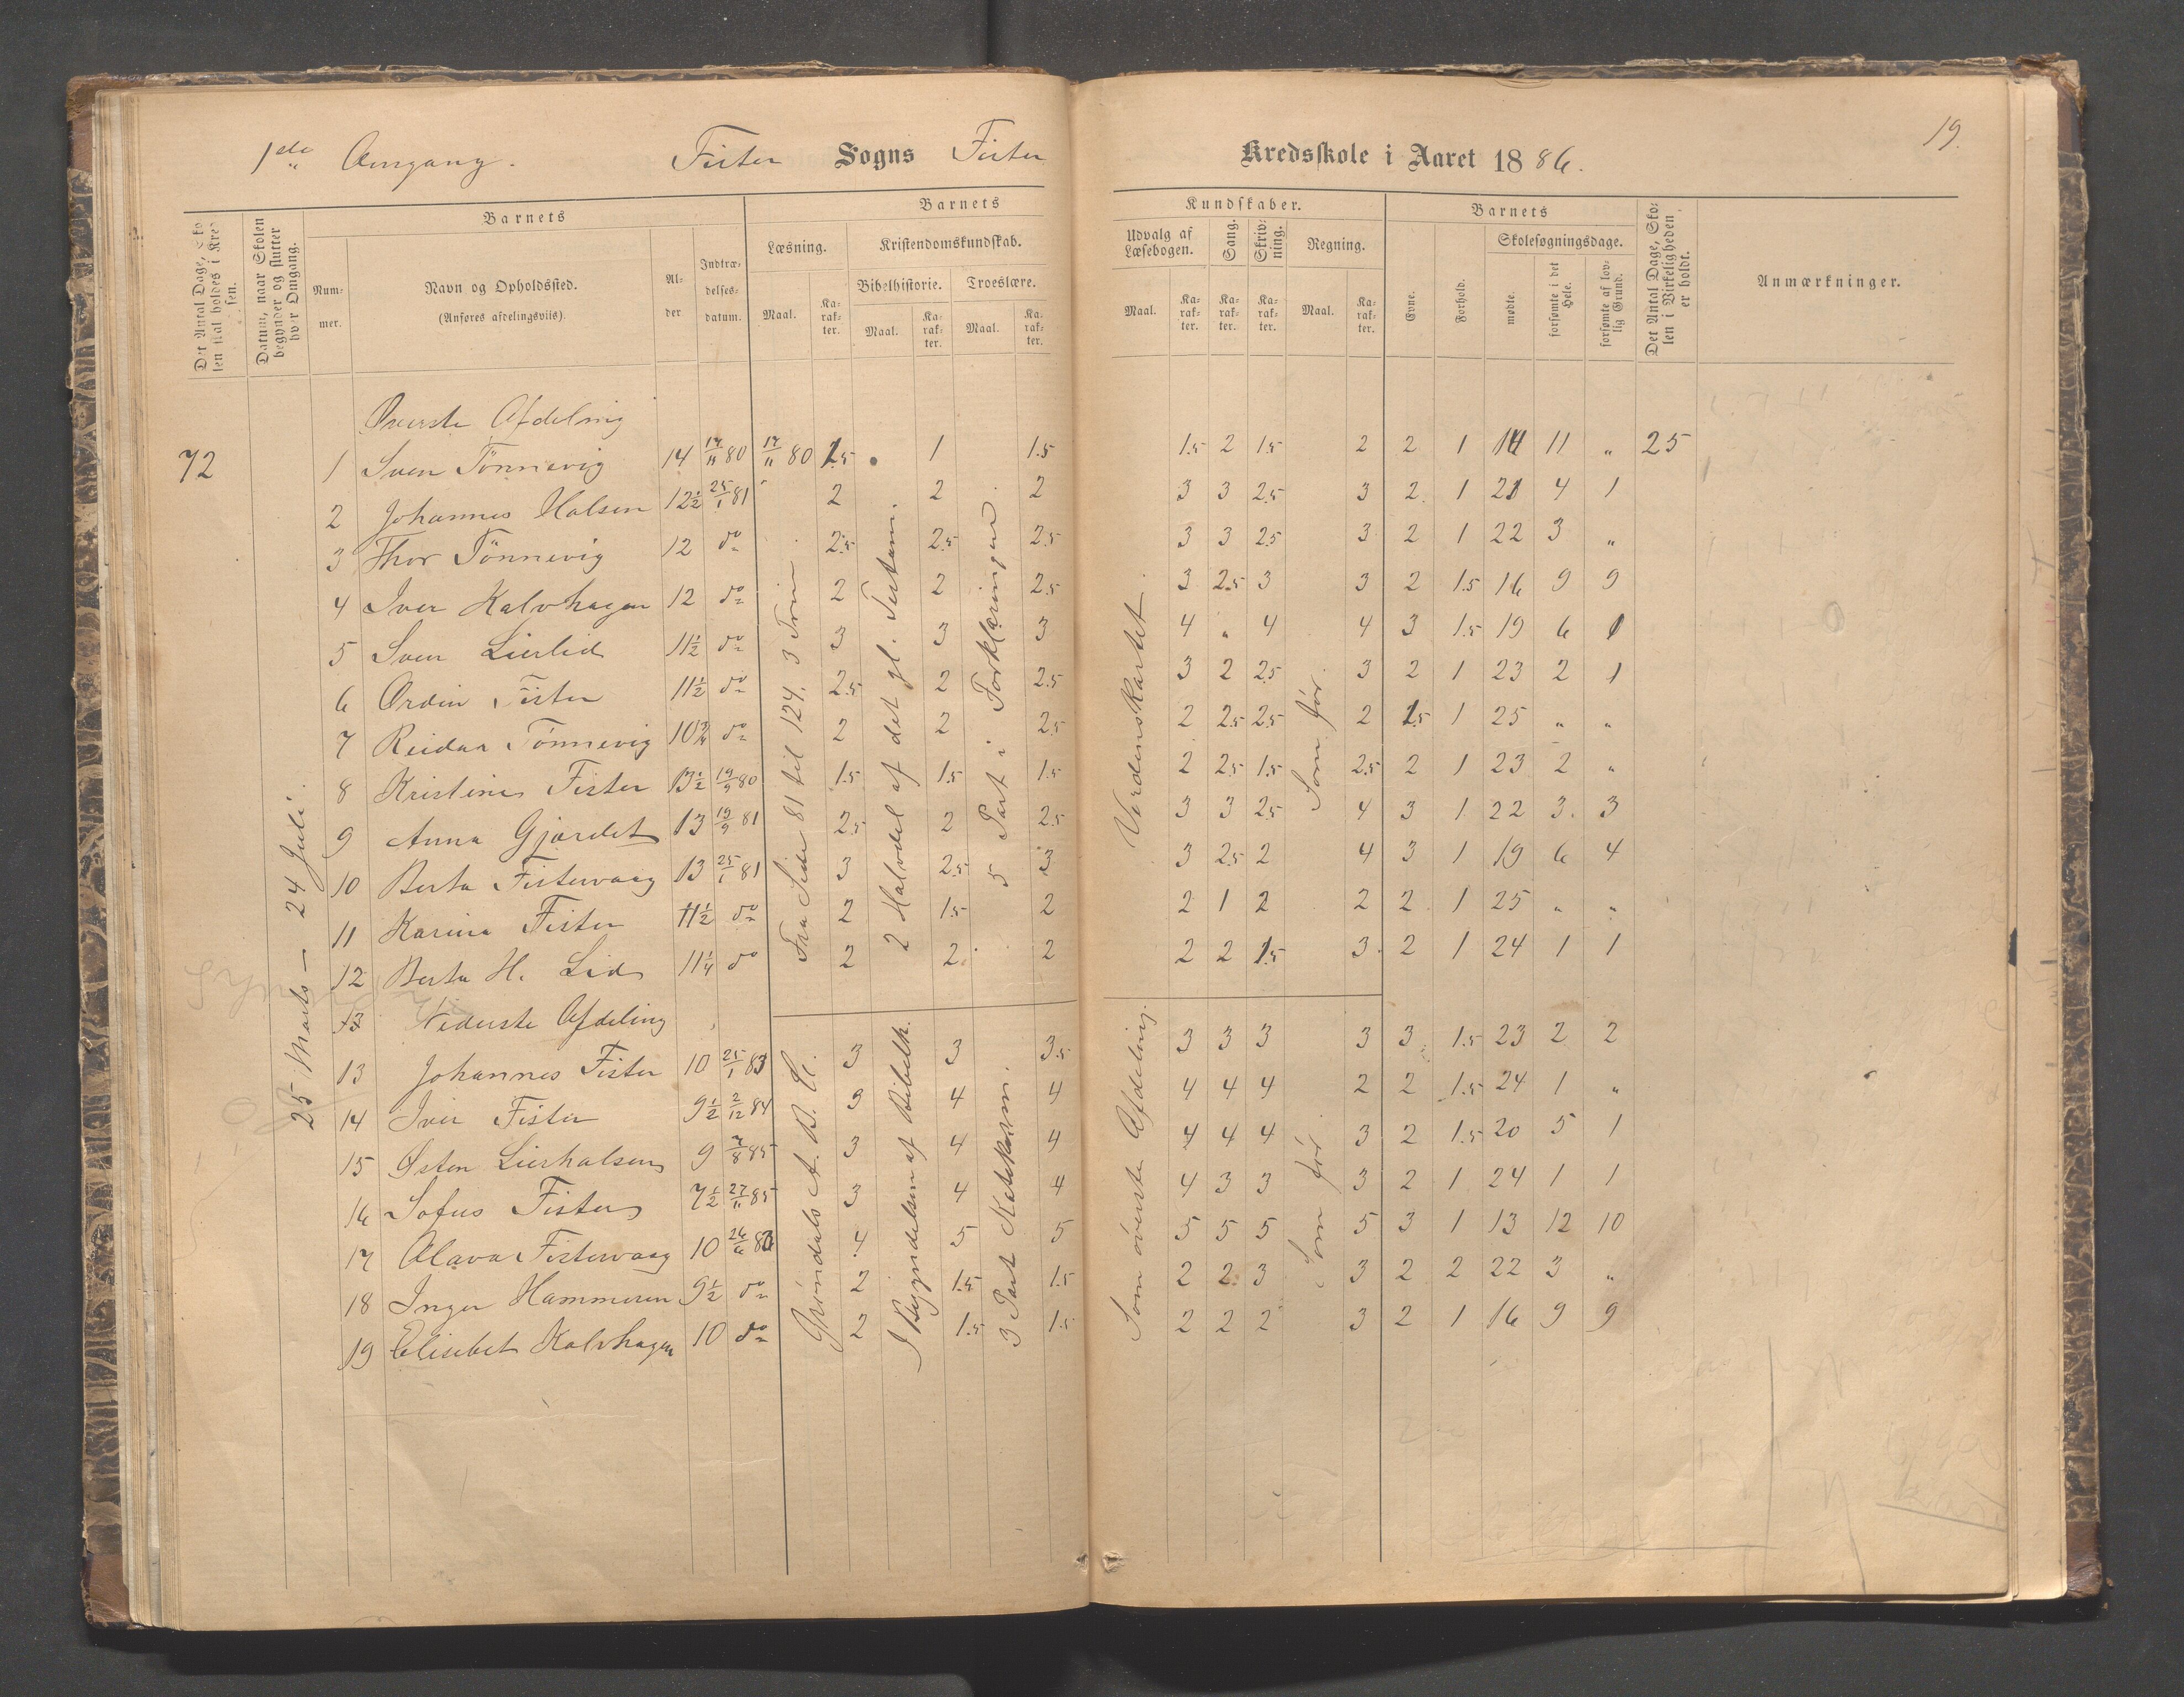 1ste Omgang. Fister Sogns Fister Kredsskole i Aaret 1886. 19.
Det Antal Dage, Skolen skal holdes i Kredsen.
Datum, naar Skolen begynder og slutter hver Omgang.
Barnets
Nummer.
Navn og Opholdssted.
(Anføres afdelingsviis).
Alder
Indtrædelsesdatum.
Barnets Kundskaber.
Læsning.
Maal. Karakter.
Kristendomskundskab.
Bibelhistorie. Troeslære.
Maal. Karakter. Maal. Karakter.
Udvalg af Læsebogen.
Maal. Karakter.
Sang. Karakter.
Skrivning. Karakter.
Regning.
Maal. Karakter.
Barnets
Evne. Forhold.
Skolesøgningsdage.
mødte. forsømte i det Hele. forsømte af lovlig Grund.
Det Antal Dage, Skolen i Virkeligheden er holdt.
Anmærkninger.
72
25 Marts — 24 Juli.
Øverste Afdeling
1 Sven Tönnevig 14 17/11 80 17/11 80 1.5 1 1.5 1.5 2 1.5 2 2 1 14 11 " 25
2 Johannes Halsen 12½ 25/1 81 2 2 2 3 3 2.5 3 2 1 21 4 1
3 Thor Tönnevig 12 do 2.5 2.5 2.5 3 3 2.5 3 2 1 22 3 "
4 Iver Kalvhagen 12 do 2 2 2.5 3 2.5 3 3 2 1.5 16 9 9
5 Sven Lierlid 11½ do 3 3 3 4 " 4 4 3 1.5 19 6 1
6 Ordin Fister 11½ do 2.5 2 2.5 3 2 2.5 3 2 1 23 2 1
7 Reidar Tönnevig 10¾ do 2 2 2.5 2 2.5 2.5 2 1.5 1 25 " "
8 Kristine Fister 13½ 19/9 80 1.5 1.5 1.5 2 2.5 1.5 2.5 2 1 23 2 "
9 Anna Gjerdet 13 19/9 81 2.5 2 2.5 3 3 2.5 4 3 1 22 3. 3
10 Berta Fistervaag 13 25/1 81 3 2.5 3 3 2.5 2 4 3 1 19 6 4
11 Karina Fister 11½ do 2 1.5 2 2 1 2 2 2 1 25 " "
12 Berta H. Lid 11¼ do 2 2 2 2 2 1.5 3 2 1 24 1 1
Fra Side 81 til 124. 3 Trin
2 Halvdel af det gl. Testam.
5 Part i Forklaringen
Verdenskartet.
Som før.
13 Nederste Afdeling
13 Johannes Fister 10 25/1 83 3 3 3.5 3 3 3 3 3 1.5 23 2 2
14 Iver Fister 9½ 2/12 84 3 4 4 4 4 4 2 2 1.5 24 1 "
15 Østen Lierhalsen 9 7/8 85 3 4 4 4 4 4 3 2 1.5 20 5 1
16 Sofus Fister 7½ 27/11 85 3 4 4 4 3 3 3 2 1 24 1 1
17 Olava Fistervaag 10 26/6 83 4 5 5 5 5 5 5 3 1 13 12 10
18 Inger Hammeren 9½ do 2 1.5 1.5 2 2 3 3 2 2 22 3 "
19 Elisebet Kalvhagen 10 do 2 1.5 1.5 2 2 2 3 2 1 16 9 9
Grøndals A. B. C.
I Begyndelsen af Bibelh.
3 Part Katekism.
Som øverste Afdeling.
Som før